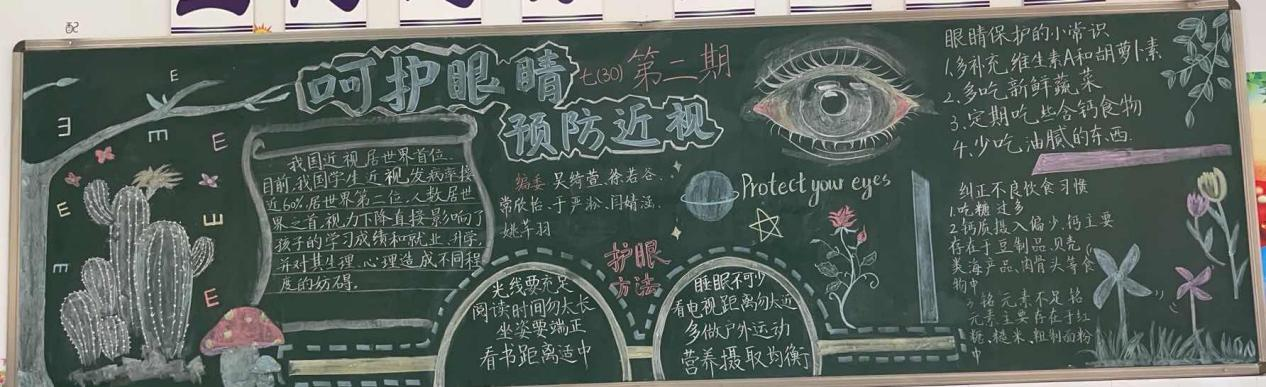 配
E
E
E
E
E
E
E
E
呵护眼睛
七(30)第二期
预防近视
我国近视居世界首位.
目前,我国学生近视发病率接
近60%.居世界第二位,人数居世
界之首.视力下降直接影响了
孩子的学习成绩和就业、升学,
并对其生理、心理造成不同程
度的妨碍。
编委 吴绮萱.徐若谷.
常欣怡.于严淞.闫婧涵.
姚芊羽
Protect your eyes
护眼
方法
光线要充足
阅读时间勿太长
坐姿要端正
看书距离适中
睡眠不可少
看电视距离勿太近
多做户外运动
营养摄取均衡
眼睛保护的小常识
1.多补充维生素A和胡萝卜素
2.多吃新鲜蔬菜
3.定期吃些含钙食物
4.少吃油腻的东西.
纠正不良饮食习惯
1.吃糖过多
2.钙质摄入偏少.钙主要
存在于豆制品、贝壳
类海产品、肉骨头等食
物中
3.铬元素不足铬
元素主要存在于红
糖、糙米、粗制面粉
中